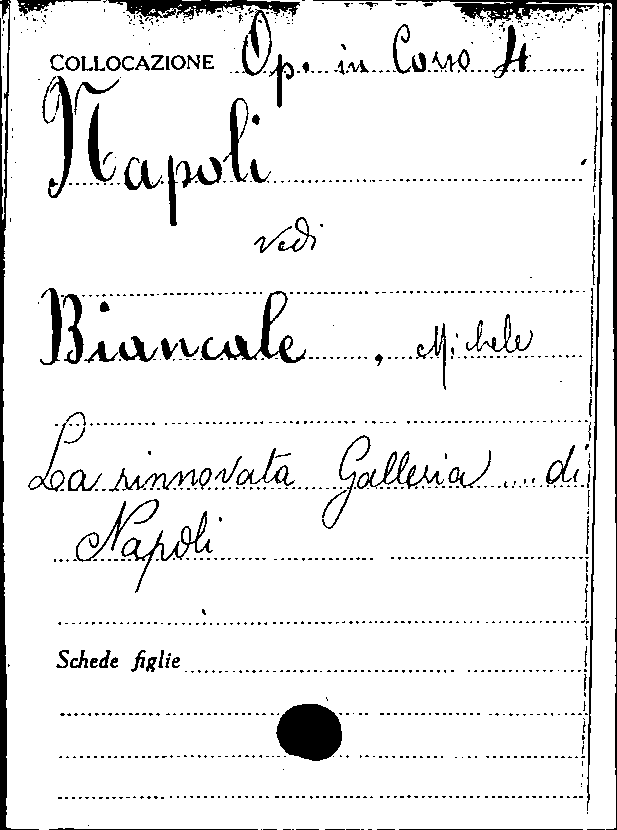 COLLOCAZIONE Op. in Corso 4
Napoli
vedi
Biancale, Michele
La rinnovata Galleria .... di
Napoli
Schede figlie